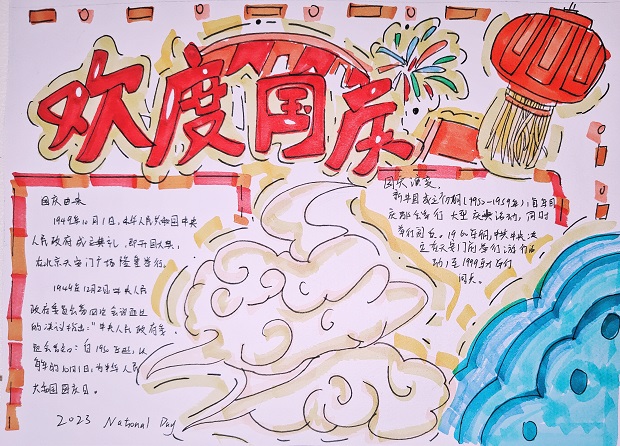 欢度国庆
国庆由来
1949年10月1日,中华人民共和国中央
人民政府成立典礼,即开国大典,
在北京天安门广场隆重举行。
1949年12月2日,中央人民
政府委员会第四次会议通过
的决议指出:"中央人民政府委
员会宣布:自1950年起,以
每年的10月1日,为中华人民
共和国国庆日。
2023 National Day
国庆演变
新中国成立初期(1950—1959年),每年国
庆都会举行大型庆典活动,同时
举行阅兵。1960年9月,中共中央决
定
在天安门前举行游行活
动,至1999年举行
阅兵。